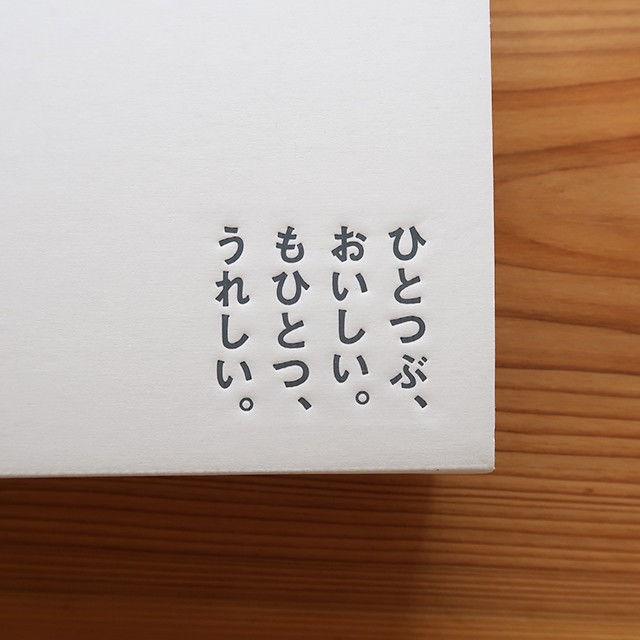 ひとつぶ、
おいしい。
もひとつ、
うれしい。